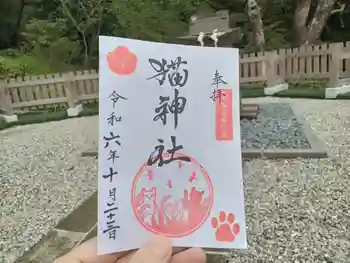 奉拝
猫神社
令和六年十月二十二日